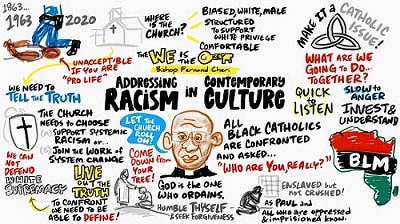 1863...
1963
2020
UNACCEPTABLE
IF YOU ARE
"PRO LIFE"
WHERE
IS THE
CHURCH?
BIASED, WHITE, MALE
STRUCTURED
TO SUPPORT
WHITE PRIVILEGE
COMFORTABLE
THE WE IS THE
Bishop Fernand Cheri
MAKE IT A
CATHOLIC
ISSUE!
ADDRESSING
RACISM IN CONTEMPORARY
CULTURE
WHAT ARE WE
GOING TO DO...
TOGETHER?
QUICK
TO
LISTEN
SLOW TO
ANGER
INVEST &
UNDERSTAND
WE NEED TO
TELL THE TRUTH
THE CHURCH
NEEDS TO CHOOSE
SUPPORT SYSTEMIC
RACISM OR...
JOIN THE WORK OF
SYSTEM CHANGE
LET THE
CHURCH
ROLL
ON!
COME
DOWN
FROM
YOUR
TREE!
ALL
BLACK CATHOLICS
ARE CONFRONTED
AND ASKED...
"WHO ARE YOU REALLY?"
BLM
WE CAN
NOT DEFEND
WHITE
SUPREMACY
LIVE
OUT THE
TRUTH
TO CONFRONT
WE NEED TO BE
ABLE TO DEFINE!
GOD IS THE ONE
WHO ORDAINS.
HUMBLE THYSELF
& SEEK FORGIVENESS
ENSLAVED but
not CRUSHED!
AS PAUL and
ALL WHO ARE OPPRESSED
& IMPRISONED KNOW.